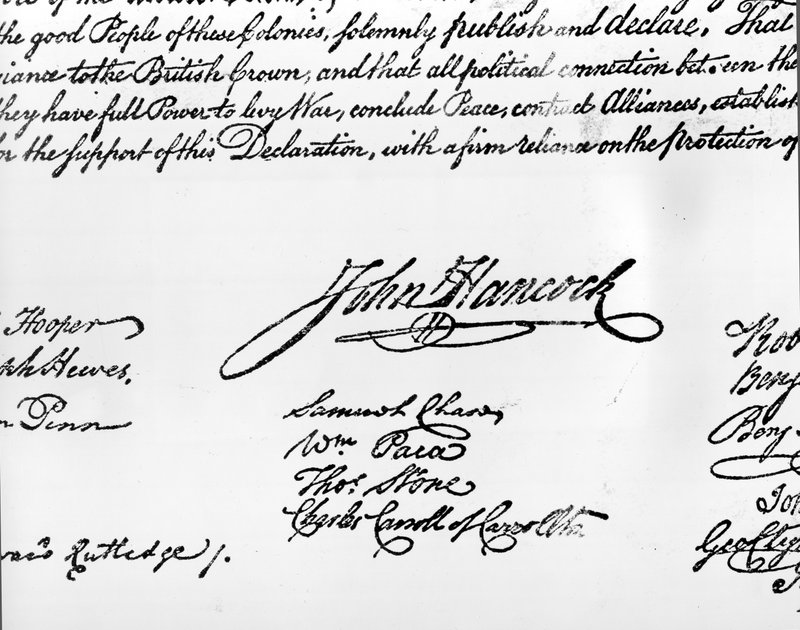 the good People of these Colonies, solemnly publish and declare, That
to the British Crown, and that all political connection bet een the
they have full Power to levy War, conclude Peace, contract Alliances, establish
for the support of this Declaration, with a firm reliance on the Protection of
John Hancock
Hooper
Hewes,
Penn
Rutledge /.
Samuel Chase
Wm. Paca
Thos. Stone
Charles Carroll of Carrollton
Rob
Benj
Benj
Joh
Geo Clym